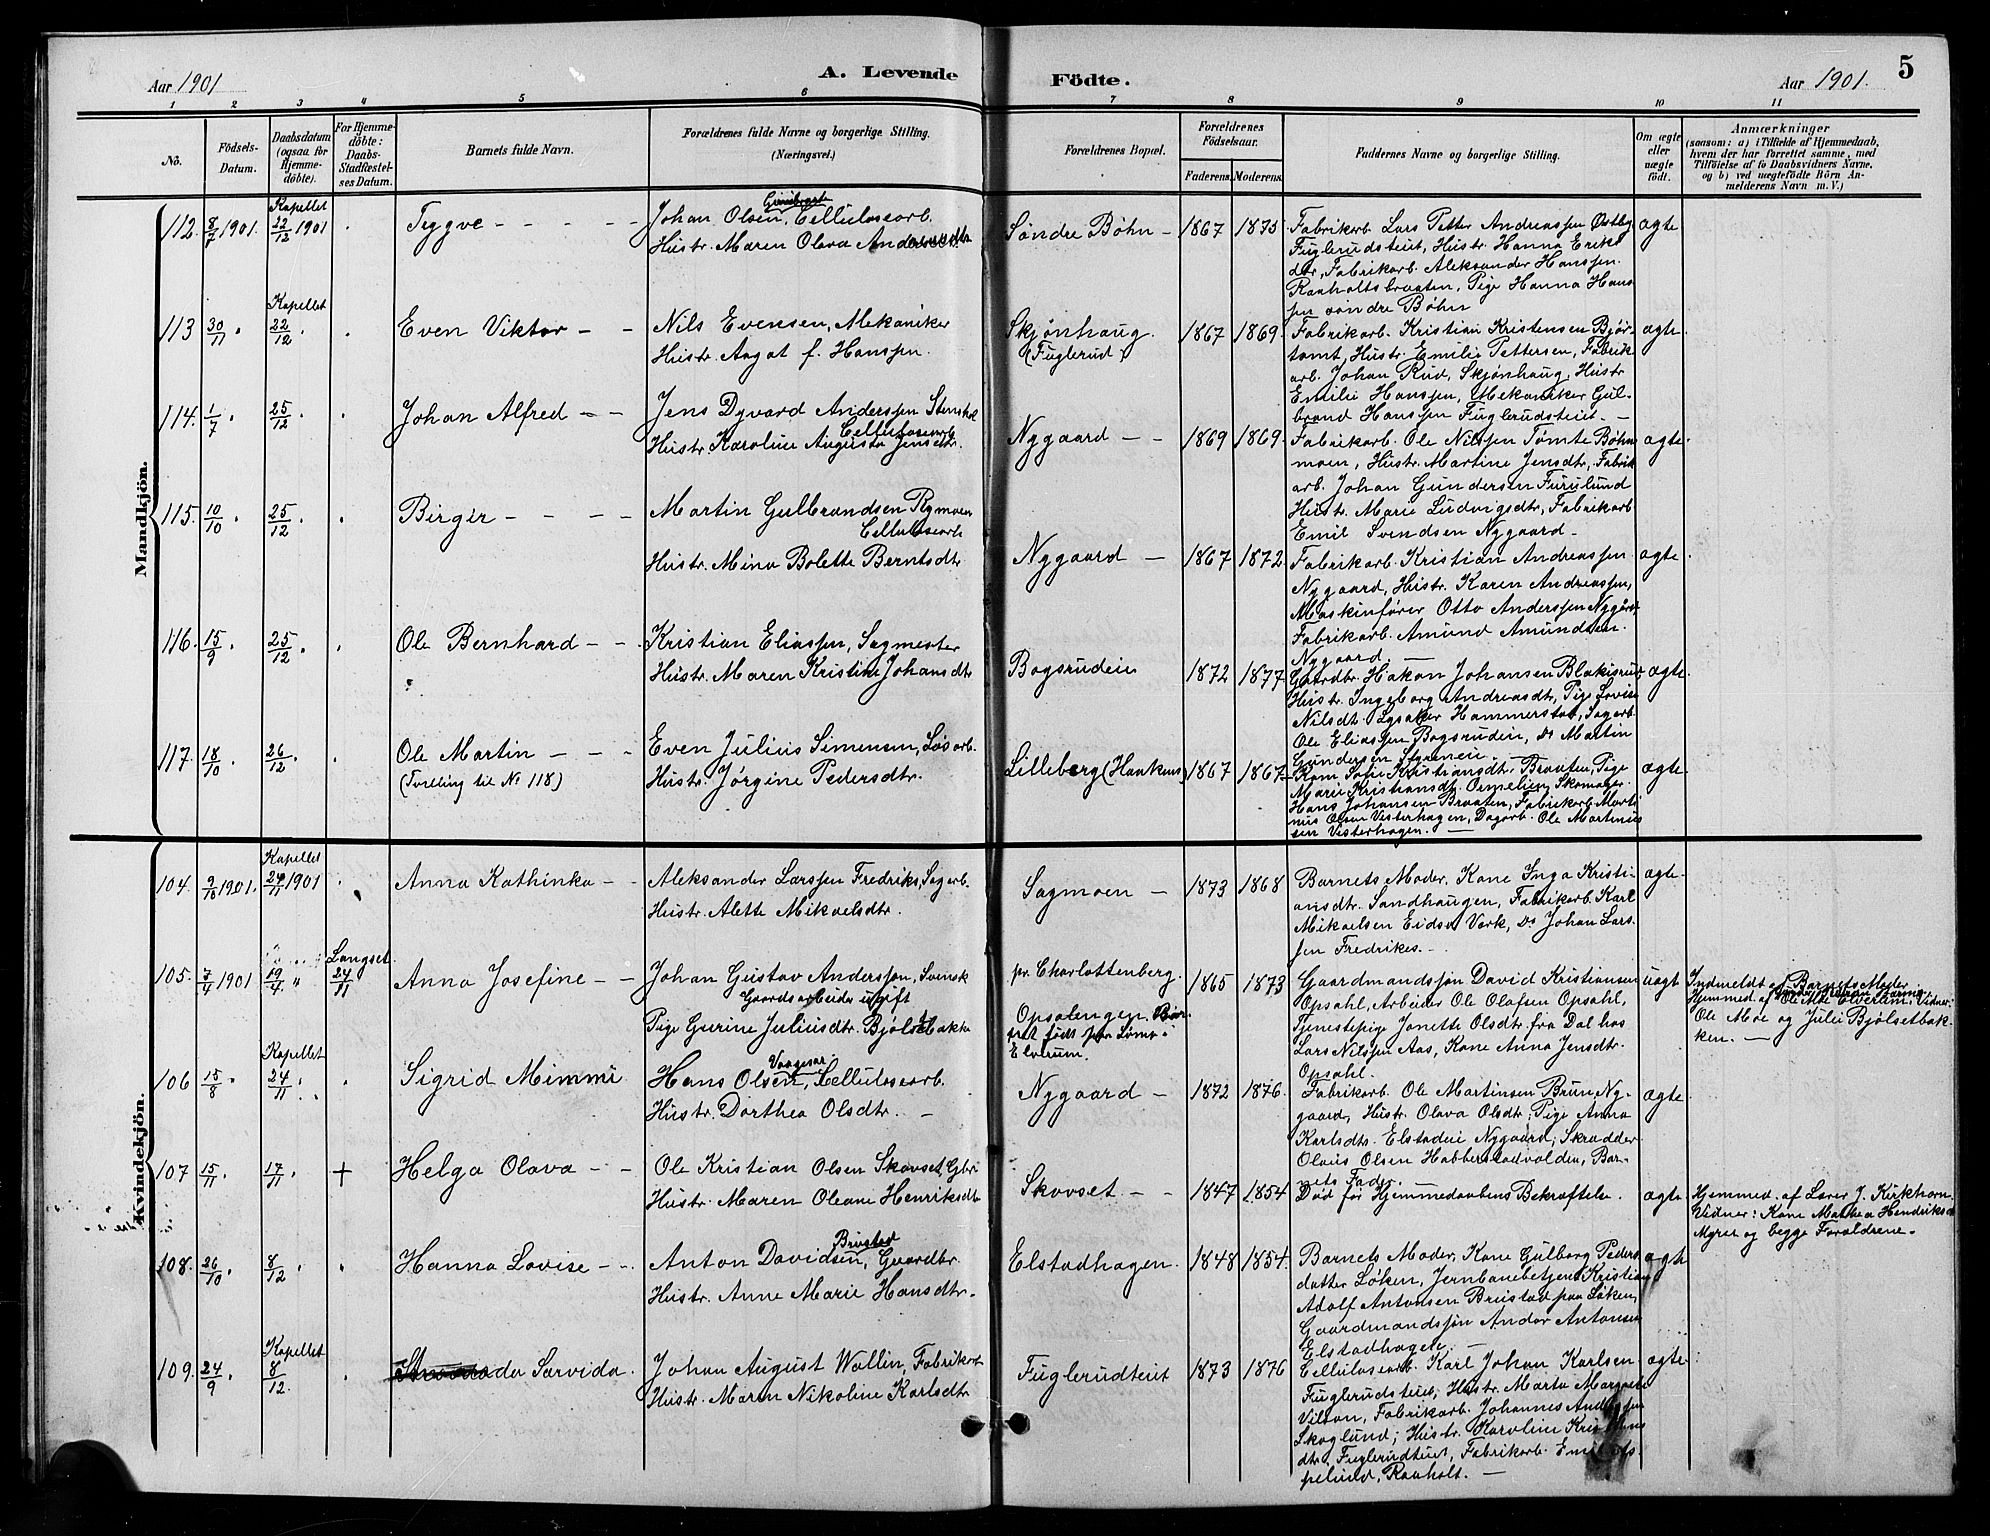 5
Aar 1901
A. Levende
Födte.
Aar 1901.
1 2 3 4 5 6 7 8 9 10 11
No.
Födsels-
Datum.
Daabsdatum
(ogsaa for
Hjemme-
döbte).
For Hjemme-
döbte:
Daabs-
Stadfæstel-
ses Datum.
Barnets fulde Navn.
Forældrenes fulde Navne og borgerlige Stilling.
(Næringsvei.)
Forældrenes Bopæl.
Forældrenes
Födselsaar.
Faderens.
Moderens.
Faddernes Navne og borgerlige Stilling.
Om ægte
eller
uægte
født.
Anmærkninger
(saasom: a) i Tilfælde af Hjemmedaab,
hvem der har forrettet samme, med
Tilföielse af to Daabsvidners Navne.
og b) ved uægtefödte Börn An-
melderens Navn m. V.)
Mandkjön.
112. 8/7 1901. Kapellet 22/12 1901
Tryggve
Johan Olsen, Cellulosearb.
Hustr. Maren Olava Andersdtr
Søndre Bøhn 1867 1875
Fabrikarb. Lars Petter Andreassen Østby
Fuglerudsteiet, Hustr. Hanna Eriks
dtr, Fabrikarb. Aleksander Hanssen
Raaholtsbraaten, Pige Hanna Hans
sen søndre Bøhn
ægte
113 30/11 Kapellet 22/12
Even Viktor
Nils Evensen, Mekaniker
Hustr. Aagot f. Hanssen.
Skjønhaug.
(Fuglerud)
1867 1869.
Fabrikarb. Kristian Kristensen Bjør-
tomt, Hustr. Emilie Pettersen, Fabrik
arb. Johan Rud, Skjønhaug, Hustr
Emilie Hanssen, Mekaniker Gul-
brand Hanssen Fuglerudsteiet.
ægte
114. 1/7 25/12
Johan Alfred
Jens Dyvard Anderssen
Cellulosearb
Hustr. Karoline Augusta Jensdtr.
Nygaard 1869 1869.
Fabrikarb. Ole Nilssen Tømte Bøhn
moen, Hustr. Martine Jensdtr, Fabrik
arb. Johan Gundersen Furulund
Hustr. Marie Ludvigsdtr, Fabrikarb
Emil Svendsen Nygaard
ægte.
115. 10/10 25/12
Birger
Martin Gulbrandsen Rymoen
Cellulosearb
Hustr. Mina Bolette Berntsdtr
Nygaard 1867 1872
Fabrikarb. Kristian Andreassen
Nygaard, Hustr. Karen Andreassen,
Maskinfører Otto Anderssen Nygård
Fabrikarb. Amund Amundsen
Nygaard
ægte
116. 15/9 25/12
Ole Bernhard
Kristian Eliassen, Sagmester
Hustr. Maren Kristine Johansdtr
Bogsrudeie 1872 1877
Gaardbr. Hakon Johansen Blakisrud
Hustr. Ingeborg Andreasdtr, Pige Lovise
Nilsdt. Lysaker Hammerstad, Sagarb.
Ole Eliassen Bogsrudeie, Do Martin
Gundersen
ægte.
117. 18/10 26/12
Ole Martin
(Tvilling til No 118)
Even Julius Simensen, Løsarb.
Hustr. Jørgine Pedersdtr.
Lilleberg (Haakens) 1867 1867
Kone Sofie Kristiansdtr. Braaten, Pige
Marie Kristiansdtr. Ormelien, Skomager
Hans Johansen Braaten, Fabrikarb. Marti
nius Olsen Visterhagen, Dagarb. Ole Martinius
sen Visterhagen.
ægte
Kvindekjön.
104. 9/10 1901. Kapellet 24/11 1901
Anna Kathinka
Aleksander Larssen Fredriks, Sagarb.
Hustr. Alette Mikaelsdtr.
Sagmoen 1873 1868
Barnets Moder, Kone Inga Kristi-
ansdtr. Sandhaugen, Fabrikarb. Karl
Mikaelsen Eidsv. Værk, Do Johan Lars
sen Fredrikes.
ægte
105. 7/4 1901 19/4 Langset 24/11
Anna Josefine
Johan Gustav Anderssen, Svensk
Gaardsarbeider ugift
Pige Gurine Juliusdtr. Bjølsetbakke
pr. Charlottenberg.
Opsalengen. Bar
net født paa Lømo i
Elverum.
1865 1873
Gaardmandssøn David Kristiansen
Opsahl, Arbeider Ole Olafsen Opsahl,
Tjenestepige Jonette Olsdtr. fra Dal hos
Lars Nilssen Aas, Kone Anna Jensdtr.
Opsahl.
uægt
Indmeldt af Barnets Moder
Hjemmed. af Elverum; Vidner:
Ole Moe og Julie Bjølsetbak-
ken.
106 15/8 Kapellet 24/11
Sigrid Mimmi
Hans Olsen, Cellulosearb.
Hustr. Dorthea Olsdtr.
Nygaard 1872 1876.
Fabrikarb. Ole Martinsen Brun Ny-
gaard, Hustr. Olava Olsdtr; Pige Anna
Karlsdtr. Elstadeie Nygaard; Skrædder
Olaus Olsen Habberstadvolden, Bar-
nets Fader.
ægte
107 15/11 17/11 +
Helga Olava
Ole Kristian Olsen Skovset, Gbr
Hustr. Maren Oleane Henriksdtr
Skovset 1847 1854
Død før Hjemmedaabens Bekræftelse.
ægte
Hjemmed. af Lærer J. Kirkhorn
Vidner: Kone Mathea Hendriksd
Myrer og begge Forældrene.
108. 26/10 8/12
Hanna Lovise
Brustad
Anton Davidsen, Gaardbr
Hustr. Anne Marie Hansdtr.
Elstadhagen. 1848 1854.
Barnets Moder, Kone Gulborg Peders
datter Løken, Jernbanebetjent Kristian
Adolf Antonsen Brustad paa Løken,
Gaardmandssøn Andor Antonsen
Elstadhagen.
ægte
109. 24/9 Kapellet 8/12.
da Sarvida
Johan August Wallin, Fabrikarb
Hustr. Maren Nikoline Karlsdtr
Fuglerudteiet 1873 1876
Cellulosearb. Karl Johan Karlsen
Fuglerudsteiet; Hustr. Marta
Vilson, Fabrikarb. Johannes Anderssen
Skoglund; Hustr. Karoline
dtr. Fuglerudteiet, Fabrikarb. Emil
pelund, Raaholt.
ægte